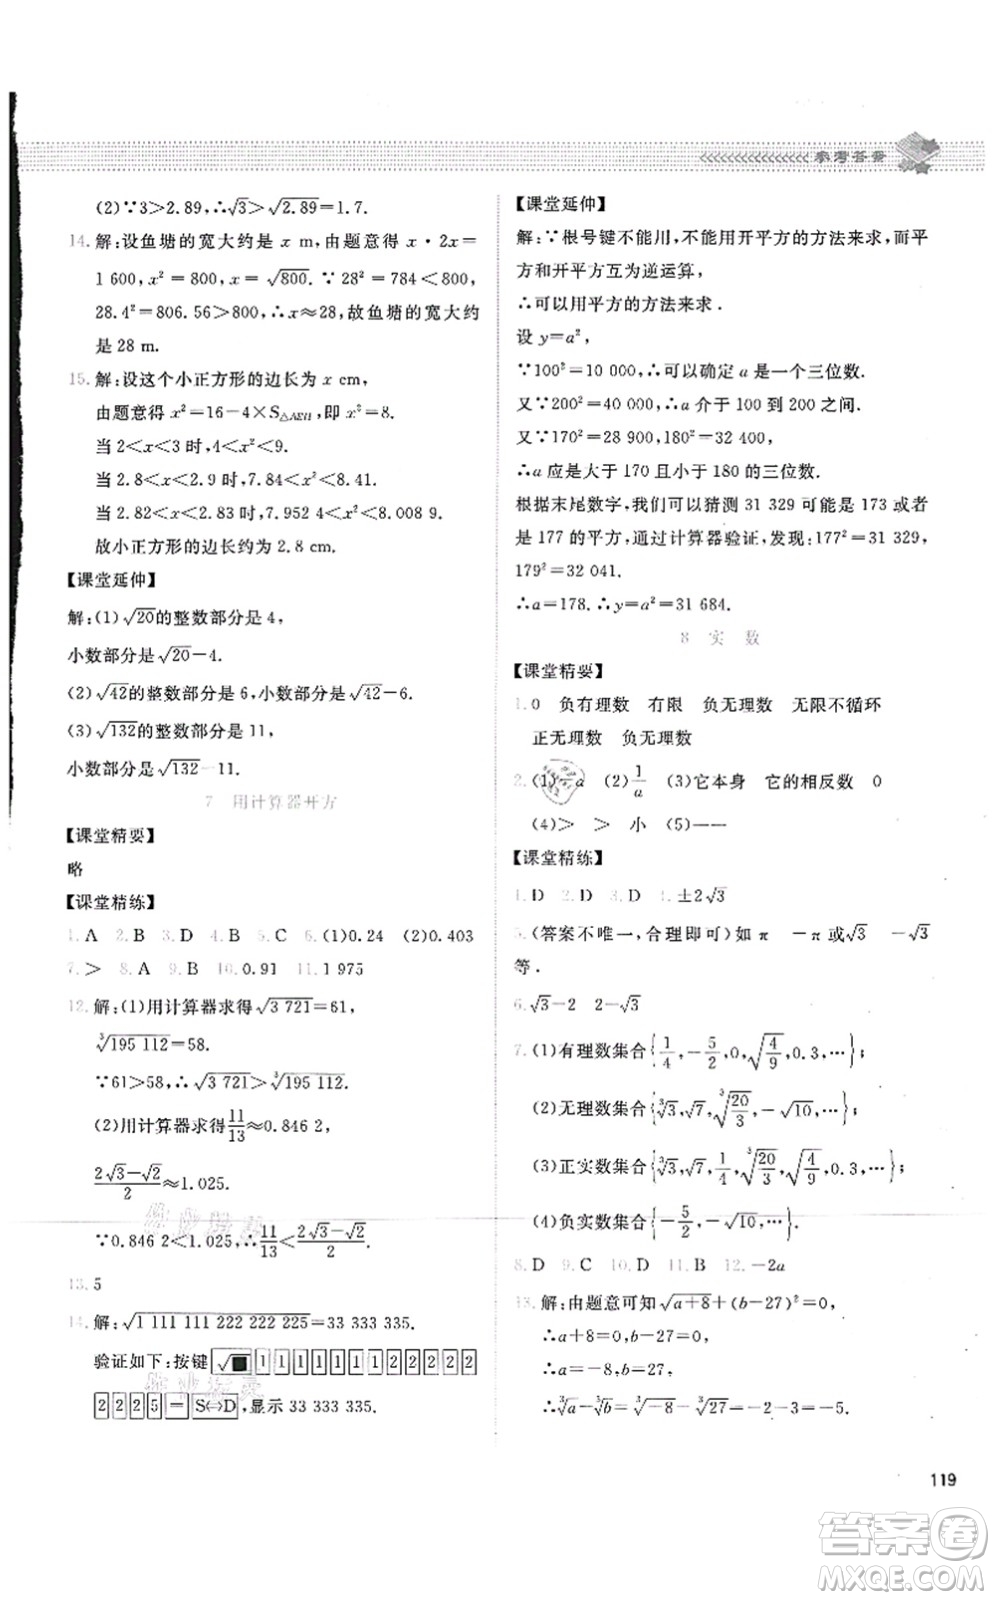 参考答案
(2)∵3＞2.89,∴√3＞√2.89=1.7.
14.解:设鱼塘的宽大约是 x m,由题意得 x·2x=
1 600,x²=800,x=√800.∵28²=784＜800,
28.4²=806.56＞800,∴x≈28,故鱼塘的宽大约
是 28 m.
15.解:设这个小正方形的边长为 x cm,
由题意得 x²=16-4×S△AEH,即 x²=8.
当 2＜x＜3 时,4＜x²＜9.
当 2.8＜x＜2.9 时,7.84＜x²＜8.41.
当 2.82＜x＜2.83 时,7.952 4＜x²＜8.008 9.
故小正方形的边长约为 2.8 cm.
【课堂延伸】
解:(1)√20的整数部分是 4,
小数部分是√20-4.
(2)√42的整数部分是 6,小数部分是√42-6.
(3)√132的整数部分是 11,
小数部分是√132-11.
7 用计算器开方
【课堂精要】
略
【课堂精练】
1.A 2.B 3.D 4.B 5.C 6.(1)0.24 (2)0.403
7.＞ 8.A 9.B 10.0.91 11.1 975
12.解:(1)用计算器求得√3 721=61,
∛195 112=58.
∵61＞58,∴√3 721＞∛195 112.
(2)用计算器求得11/13≈0.846 2,
(2√3-√2)/2≈1.025.
∵0.846 2＜1.025,∴11/13＜(2√3-√2)/2.
13.5
14.解:√1 111 111 222 222 225=33 333 335.
验证如下:按键 √■ 1 1 1 1 1 1 1 2 2 2 2 2
2 2 2 5 = S⇔D ,显示 33 333 335.
【课堂延伸】
解:∵根号键不能用,不能用开平方的方法来求,而平
方和开平方互为逆运算,
∴可以用平方的方法来求.
设 y=a²,
∵100²=10 000,∴可以确定 a 是一个三位数.
又∵200²=40 000,∴a 介于 100 到 200 之间.
又∵170²=28 900,180²=32 400,
∴a 应是大于 170 且小于 180 的三位数.
根据末尾数字,我们可以猜测 31 329 可能是 173 或者
是 177 的平方,通过计算器验证,发现:177²=31 329,
179²=32 041.
∴a=178.∴y=a²=31 684.
8 实 数
【课堂精要】
1.0 负有理数 有限 负无理数 无限不循环
正无理数 负无理数
2.(1)-a (2)1/a (3)它本身 它的相反数 0
(4)＞ ＞ 小 (5)一一
【课堂精练】
1.D 2.D 3.D 4.±2√3
5.(答案不唯一,合理即可)如 π -π或√3 -√3
等.
6.√3-2 2-√3
7.(1)有理数集合{1/4,-5/2,0,√(4/9),0.3,…};
(2)无理数集合{∛3,√7,∛(20/3),-√10,…};
(3)正实数集合{∛3,√7,1/4,∛(20/3),√(4/9),0.3,…};
(4)负实数集合{-5/2,-√10,…}.
8.D 9.C 10.D 11.B 12.-2a
13.解:由题意可知√(a+8)+(b-27)²=0,
∴a+8=0,b-27=0,
∴a=-8,b=27,
∴∛a-∛b=∛-8-∛27=-2-3=-5.
119
答案圈
MXQE.COM